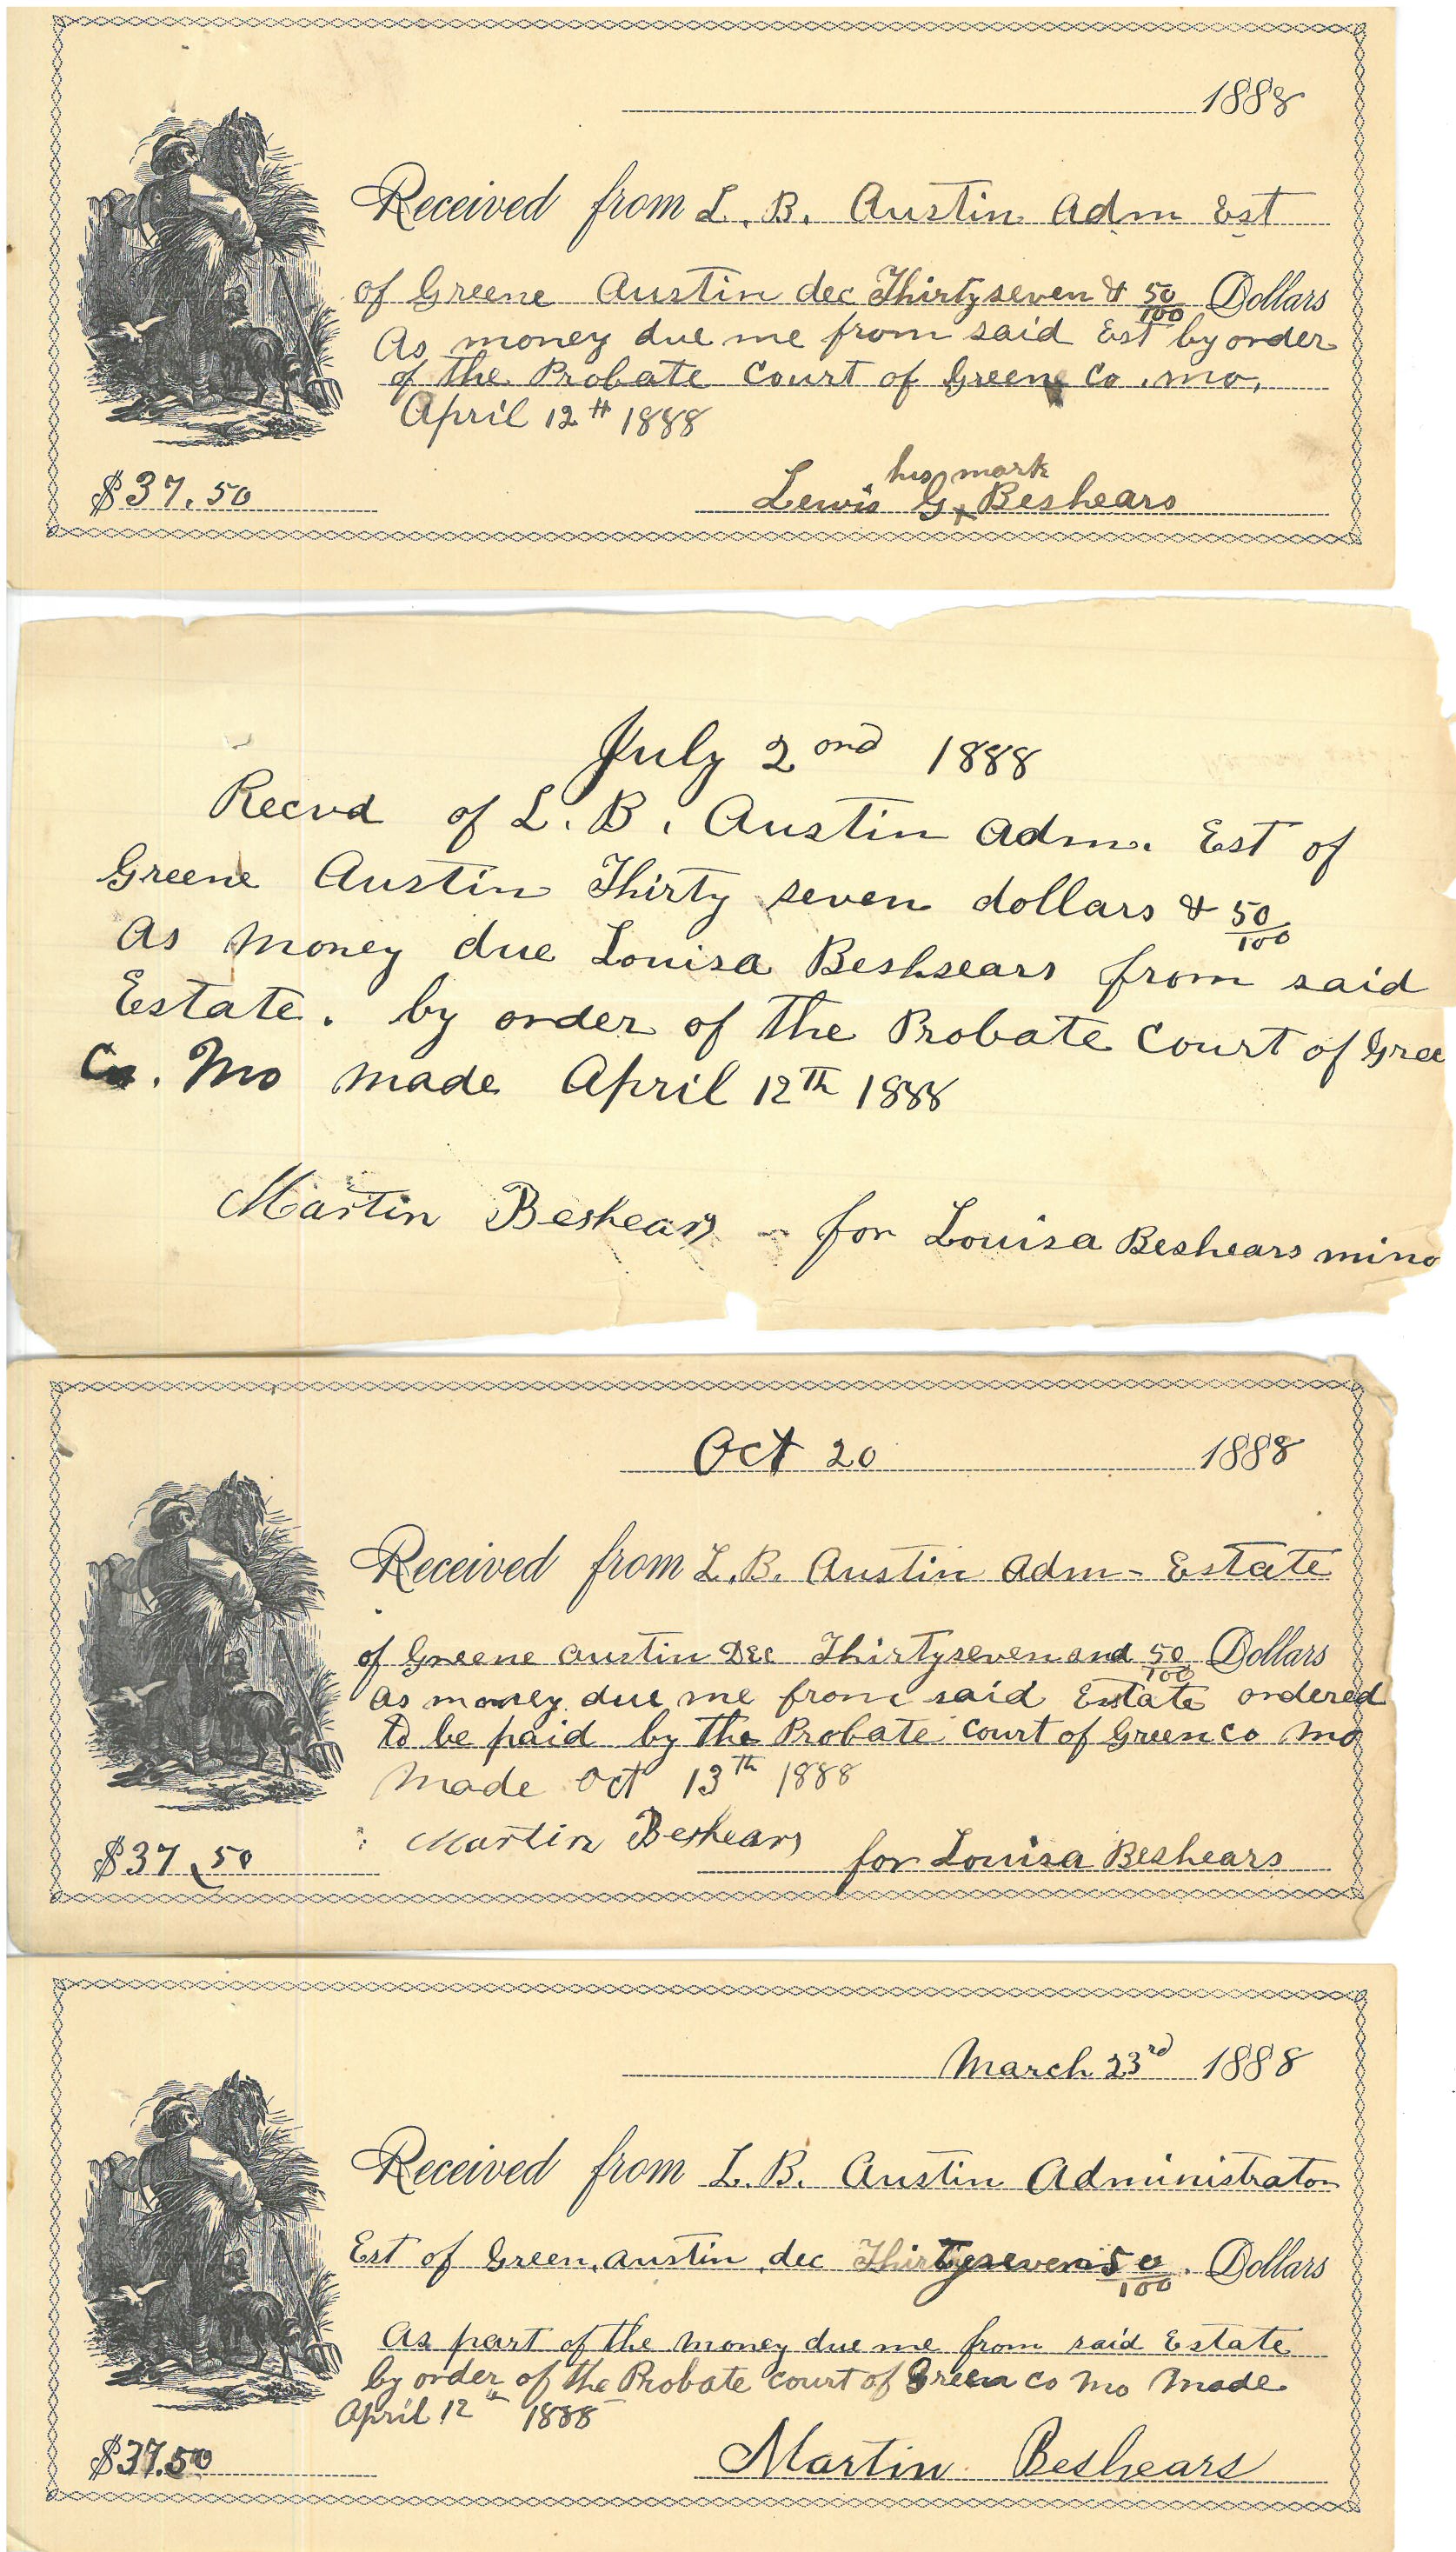 1888
Received from L. B. Austin Adm Est
of Greene Austin dec Thirty seven & 50/100 Dollars
As money due me from said Est by order
of the Probate Court of Greene Co. Mo.
April 12th 1888
his mark
$37.50 Lewis G x Beshears
July 2ond 1888
Recvd of L. B. Austin Adm. Est of
Greene Austin Thirty seven dollars & 50/100
As money due Louisa Beshsears from said
Estate. by order of the Probate Court of Gree
Co. Mo made April 12th 1888
Martin Beshears - for Louisa Beshears mino
Oct 20 1888
Received from L. B. Austin Adm - Estate
of Greene Austin Dec Thirty seven and 50/100 Dollars
As money due me from said Estate ordered
to be paid by the Probate Court of Green Co Mo
Made Oct 13th 1888
Martin Beshears
$37.50 for Louisa Beshears
March 23rd 1888
Received from L. B. Austin Administrator
Est of Green Austin dec Thirty seven 50/100 Dollars
As part of the money due me from said Estate
by order of the Probate Court of Green Co Mo Made
April 12th 1888
$37.50 Martin Beshears